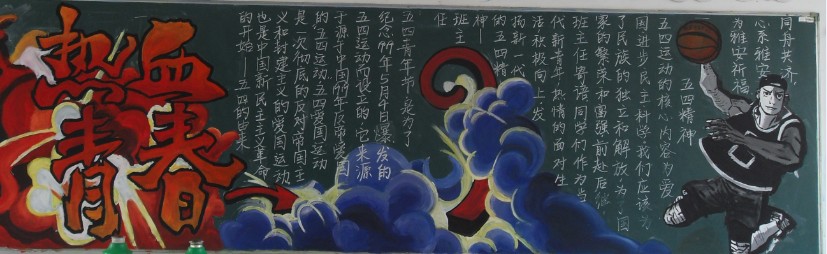 热血
青春
同舟共济
心系雅安
为雅安祈福
五四精神
五四运动的核心内容为爱
国进步民主科学,我们应该为
了民族的独立和解放为了国
家的繁荣和富强前赴后继
班主任寄语同学们作为当
代新青年热情的面对生
活积极向上发
扬新一代
的五四精
神—
班主
任
五四青年节是为了
纪念1919年5月4日爆发的
五四运动而设立的,它来源
于源于中国1919年反帝爱国
的五四运动,五四爱国运动
是一次彻底的反对帝国主
义和封建主义的爱国运动
也是中国新民主主义革命
的开始—五四的由来